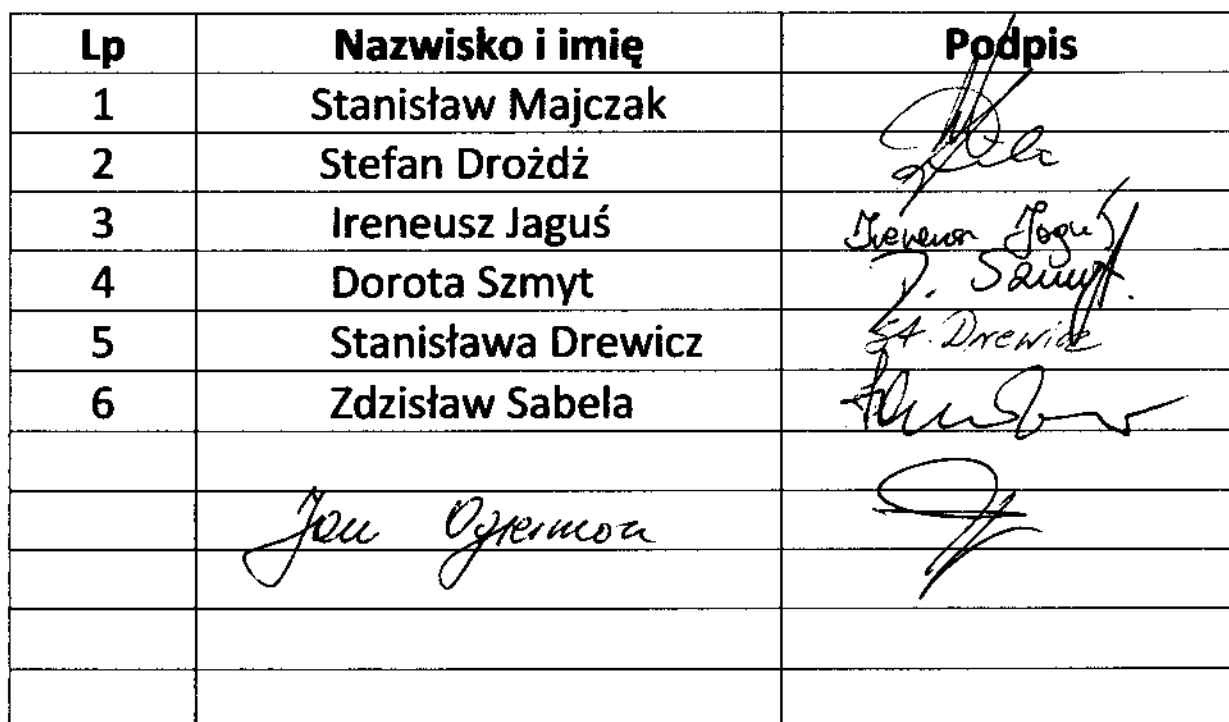 Lp Nazwisko i imię Podpis
1 Stanisław Majczak
2 Stefan Drożdż
3 Ireneusz Jaguś Ireneusz Jaguś
4 Dorota Szmyt D. Szmyt.
5 Stanisława Drewicz St. Drewicz
6 Zdzisław Sabela
Jan